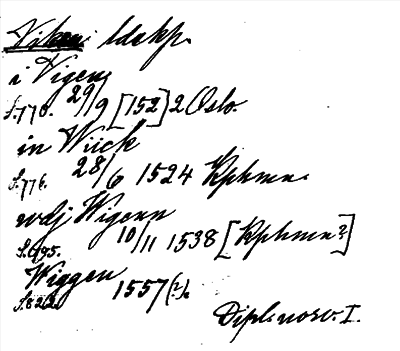 Viken ldskp.
i Vigen
S. 770. 29/9 [152]2 Oslo.
in Wiick
S. 776. 28/6 1524 Kphmn.
vdj Wigenn
S. 795. 10/11 1538 [Kphmn?]
Wiggen
S. 822. 1557(?).
Dipl. norv. I.